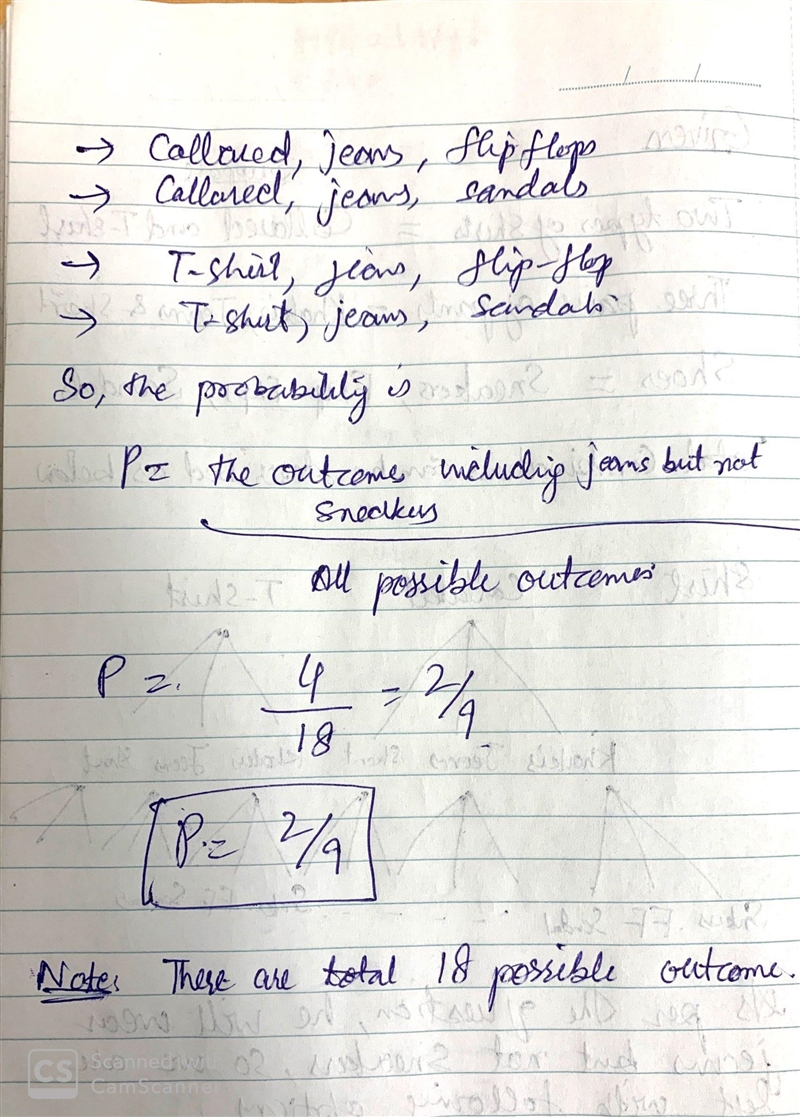 → Collared, jeans, flip flops
→ Collared, jeans, sandals
→ T-shirt, jeans, flip-flop
→ T-shirt, jeans, sandals
So, the probability is
P = the outcomes including jeans but not
sneakers
All possible outcomes
P = 4/18 = 2/9
P = 2/9
Note: There are total 18 possible outcome.
CS Scanned with
CamScanner